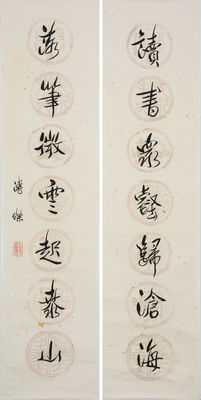 讀書眾壑歸滄海
落筆微雲起泰山
溥傑